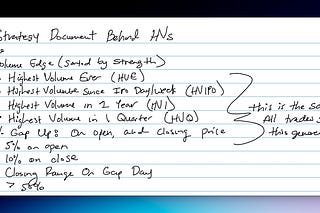 Strategy Document Behind HVs
Volume Edge (Sorted by Strength)
Highest Volume Ever (HVE)
Highest Volume Since IPO Day/week (HVIPO)
Highest Volume in 1 Year (HV1)
Highest Volume in 1 Quarter (HVQ)
Gap Up: On open, and closing price
5% on open
10% on close
Closing Range On Gap Day
> 50%
this is the
All trades
this gener